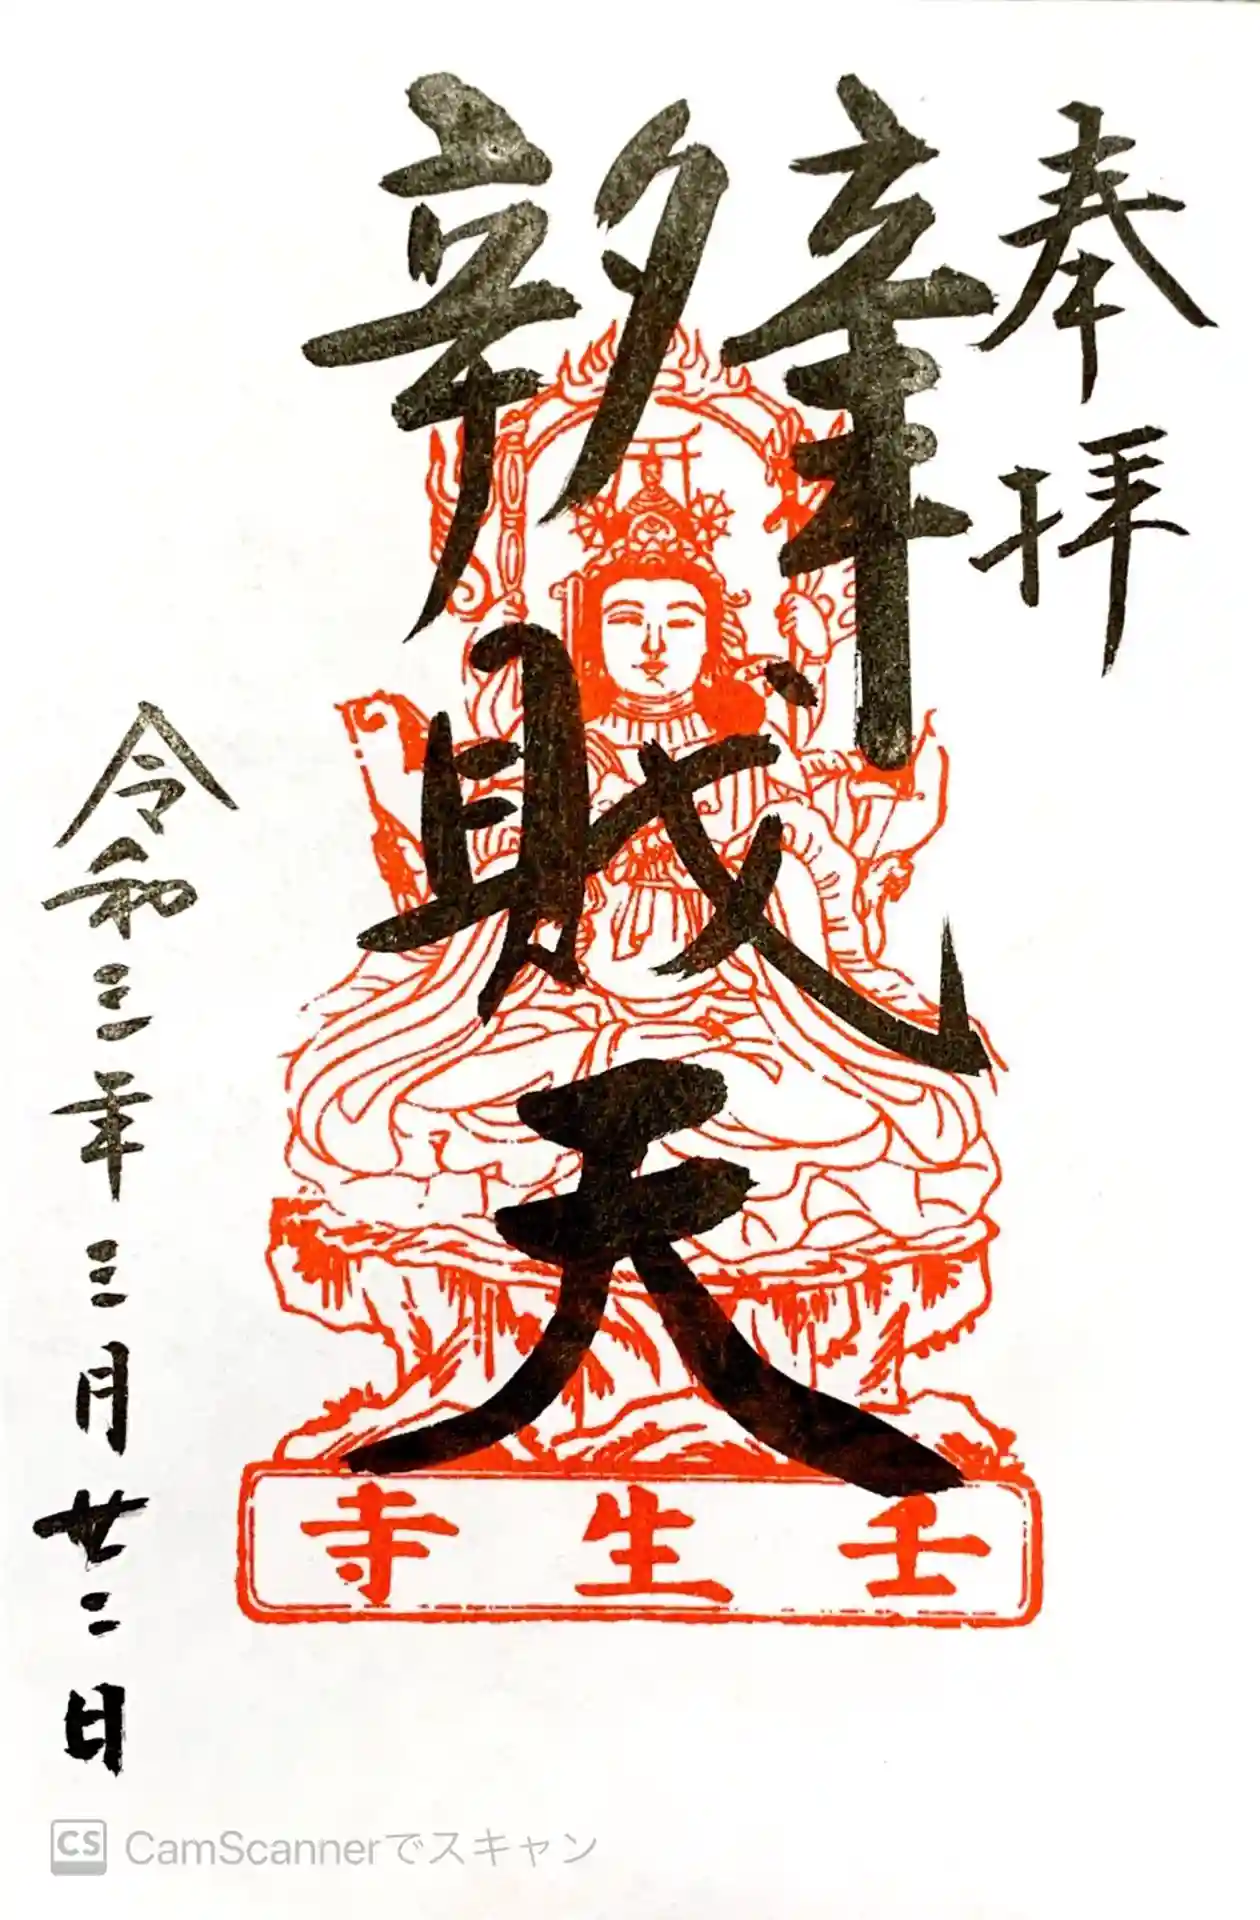 奉拝
辨財天
令和三年三月廿二日
壬生寺
CS CamScannerでスキャン